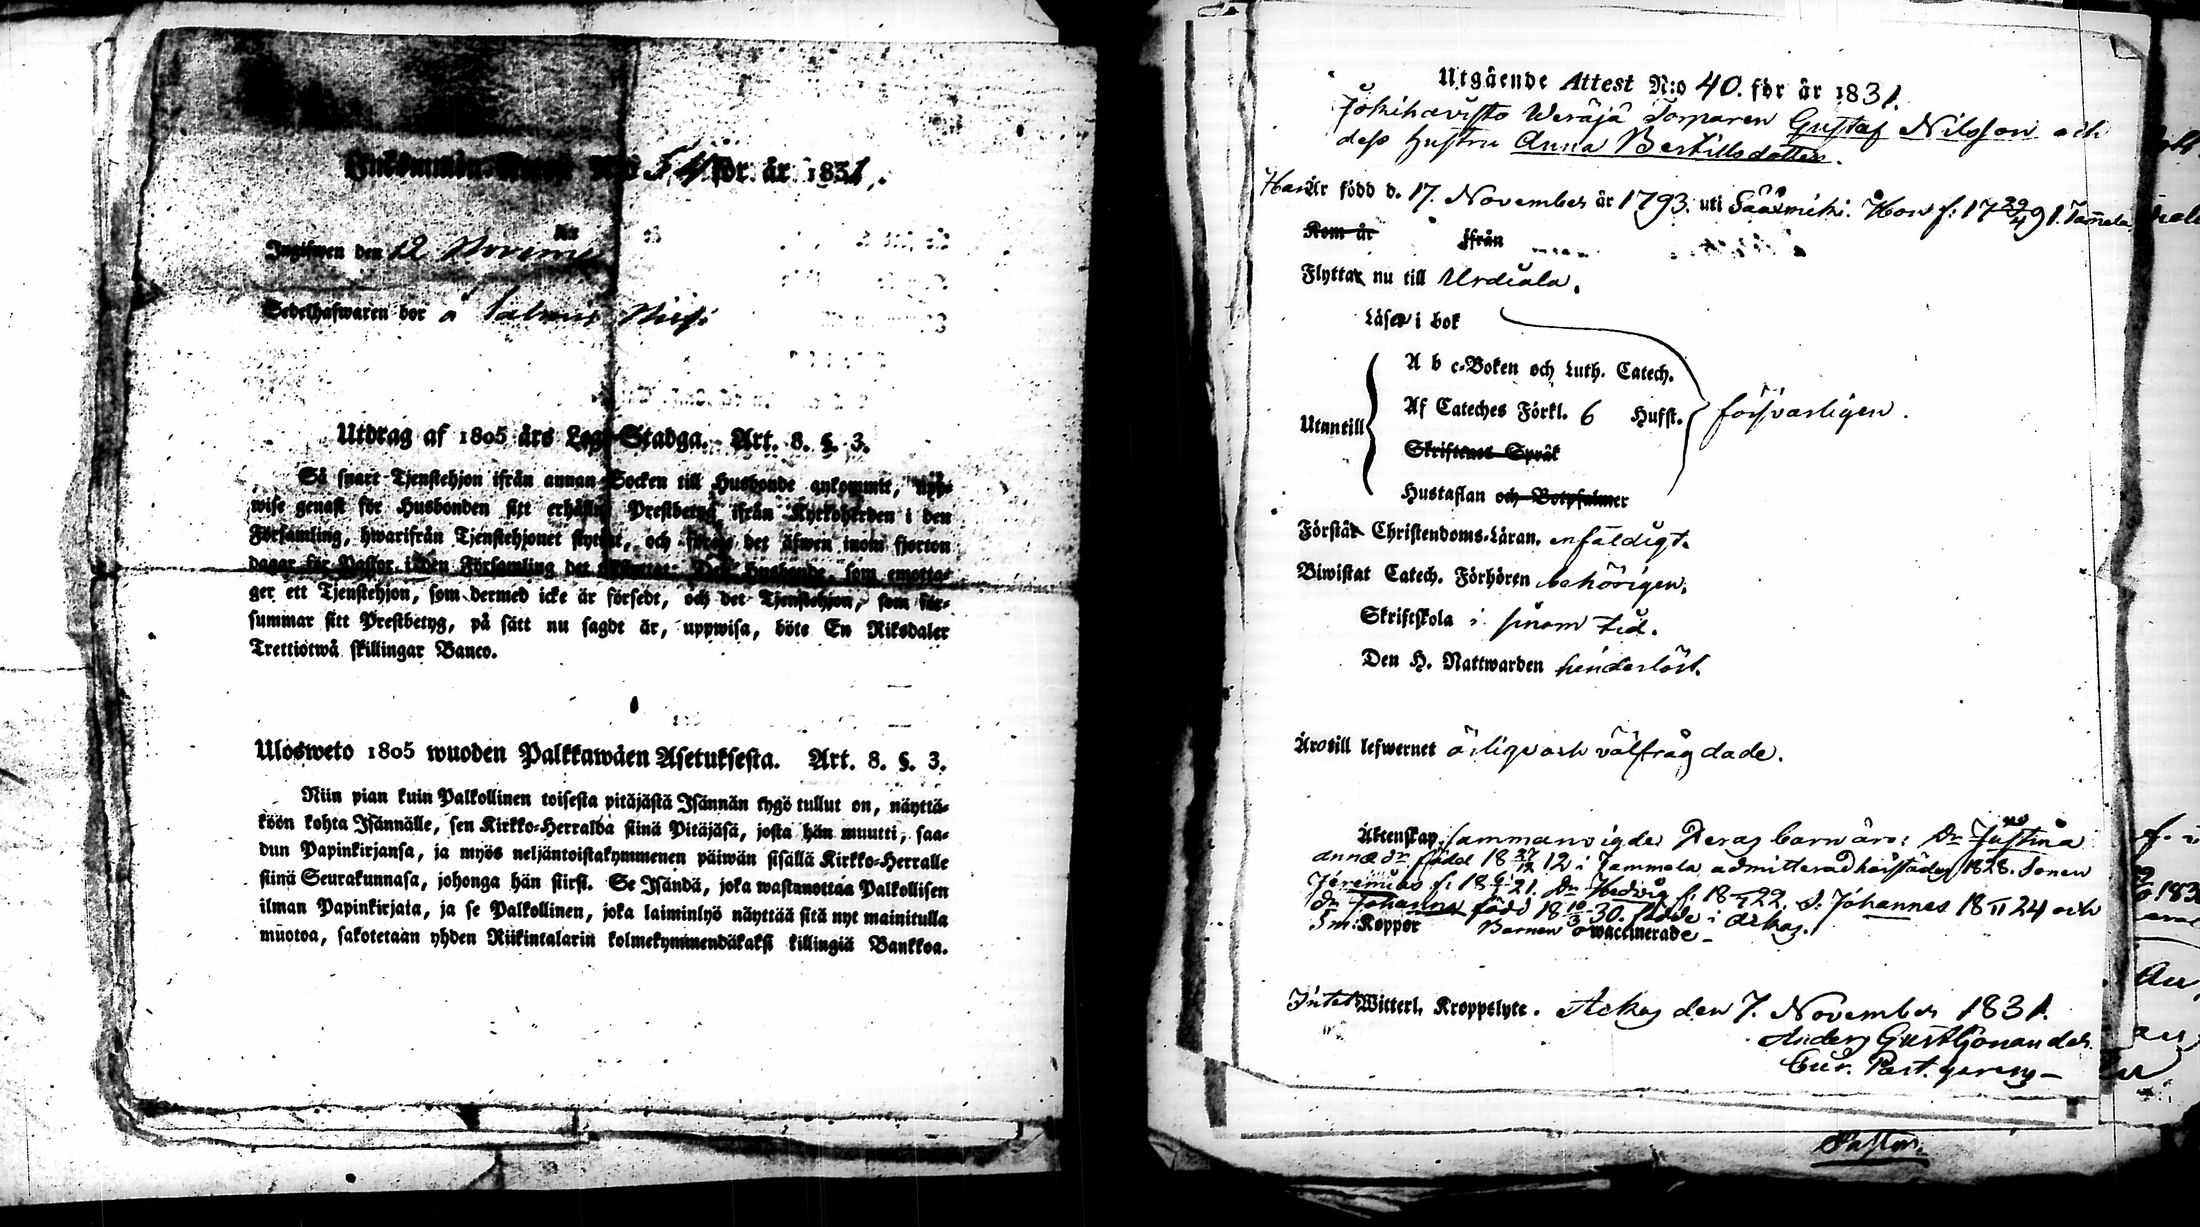 Inkommande Attest N:o 54 för år 1831.
Ingifwen den 12 November
Sedelhafwaren bor å
Utdrag af 1805 års Lego-Stadga. Art. 8. §. 3.
Så snart Tjenstehjon ifrån annan Socken till Husbonde ankommit, upp-
wise genast för Husbonden sitt erhållna Prestbetyg ifrån Kyrkoherden i den
Församling, hwarifrån Tjenstehjonet flyttat, och förete det äfwen inom fjorton
dagar för Pastor i den Församling det Den Husbonde, som emotta-
ger ett Tjenstehjon, som dermed icke är försedt, och det Tjenstehjon, som för-
summar sitt Prestbetyg, på sätt nu sagdt är, uppwisa, böte En Riksdaler
Trettiotwå skillingar Banco.
Ulosweto 1805 wuoden Palkkawäen Asetuksesta. Art. 8. §. 3.
Niin pian kuin Palkollinen toisesta pitäjästä Isännän tygö tullut on, näyttä-
köön kohta Isännälle, sen Kirkko-Herralda siinä Pitäjäsä, josta hän muutti, saa-
dun Papinkirjansa, ja myös neljäntoistakymmenen päiwän sisällä Kirkko-Herralle
siinä Seurakunnasa, johonga hän siirsi. Se Isändä, joka wastanottaa Palkollisen
ilman Papinkirjata, ja se Palkollinen, joka laiminlyö näyttää sitä nyt mainitulla
muotoa, sakotetaan yhden Riikintalarin kolmekymmendäkaksi killingiä Bankkoa.
Utgående Attest N:o 40. för år 1831.
Jokihavisto Weräjä Torparen Gustaf Nilsson och
dess hustru Anna Bertillsdotter.
Han Är född d. 17. November år 1793. uti Säaxmäki. Hon f. 17 29/4 91. Tammela
Kom år ifrån
Flyttar nu till Urdiala.
Läsa i bok
A b c-Boken och Luth. Catech.
Utantill Af Cateches Förkl. 6 Hufst. försvarligen.
Skriftenes Språk
Hustaflan och Botpsalmer
Förstår Christendoms-Läran. enfaldigt.
Biwistat Catech. Förhören behörigen.
Skriftskola i sinom tid.
Den H. Nattwarden hinderlöst.
Äro till lefwernet ärlige och välfrägdade.
Äktenskap sammanvigde. Deras barn äro: Dr Justina
anna dr född 18 27/12 12 i Tammela admitterad härstädes 1828. Sonen
Jeremias f. 18 21. Dr Hedvig f. 18 22. S. Johannes 18 11 24 och
dr Johanna född 18 10/3 30. födde i Ackas.
Koppor Barnen owaccinerade –
Intet Witterl. Kroppslyte. Ackas den 7. November 1831.
Anders Gust
Cur. Past. gerens –
Pastor.